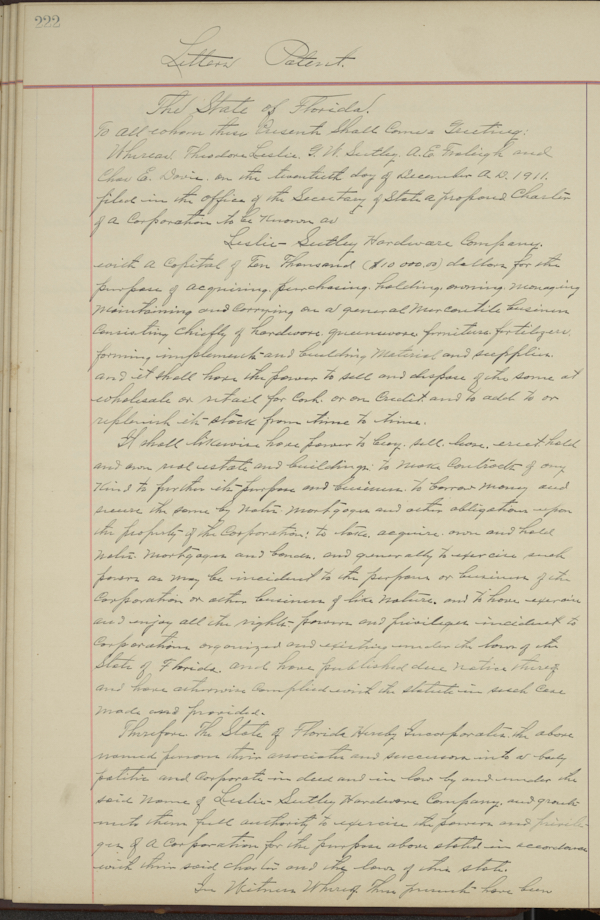 222
Letters Patent.
The State of Florida.
To all whom these Presents Shall Come Greeting:
Whereas Theodore Leslie. G. W. Sutley. A. E. Fraleigh and
Chas E. Davis. on the twentieth day of December A.D. 1911.
filed in the office of the Secretary of State a proposed Charter
of a Corporation to be Known as
Leslie-Sutley Hardware Company.
with a Capital of Ten Thousand ($10 000.00) dollars for the
purpose of acquiring, purchasing, holding, owning, managing
maintaining and carrying on a general Mercantile business
consisting chiefly of hardware, queensware, furniture, fertilizers,
farming implements and building Material and supplies
and it shall have the power to sell and dispose of the same at
wholesale or retail for Cash. or on Credit and to add to or
replenish its stock from time to time.
It shall likewise have power to buy. sell. lease. erect hold
and own real estate and buildings: to make Contracts of any
Kind to further its purpose and business. to borrow money and
secure the same by notes. mortgages and other obligations upon
the property of the Corporation; to take, acquire, own and hold
notes. mortgages and bonds. and generally to exercise such
powers as may be incident to the purpose or business of the
Corporation or other business of like nature. and to have exercise
and enjoy all the rights powers and privileges incident to
Corporations organized and existing under the laws of the
State of Florida. and have published due notice thereof
and have otherwise complied with the statute in such Case
made and provided.
Therefore The State of Florida Hereby Incorporates the above
named persons their associates and successors into a body
politic and Corporate in deed and in law by and under the
said Name of Leslie-Sutley Hardware Company. and grants
unto them full authority to exercise the powers and privile-
ges of a Corporation for the purpose above stated in accordance
with their said charter and the laws of this state.
In Witness Whereof These presents have been